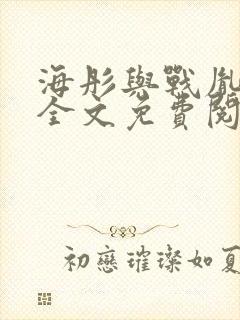 海彤與戰胤
全文免費閱
初戀璀璨如夏